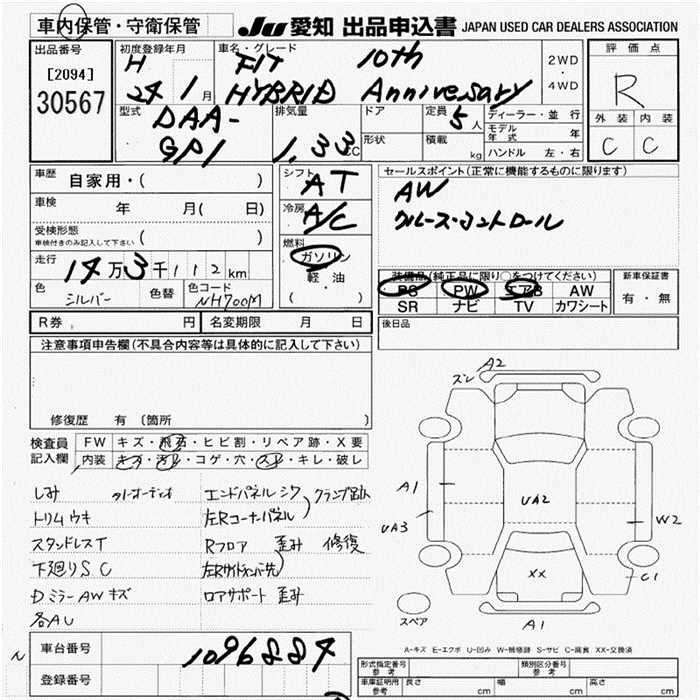 車内保管・守衛保管
JU 愛知 出品申込書 JAPAN USED CAR DEALERS ASSOCIATION
出品番号
[2094]
30567
初度登録年月
H
24 1月
車名・グレード
FIT 10th
HYBRID Anniversary
2WD
・
4WD
評価点
R
外装 内装
C C
型式
DAA-
GP1
排気量
1.33CC
ドア
形状
定員 5人
積載 kg
ディーラー・並行
モデル年式 年
ハンドル 左・右
車歴 自家用・( )
車検 年 月( 日)
受検形態
車検付きのみ記入して下さい ( )
走行 14万3千112km
色 シルバー 色替 色コード NH700M
シフト AT
冷房 A/C
燃料
ガソリン
軽・油
( )
セールスポイント(正常に機能するものに限ります)
AW
クルーズ・コントロール
装備品(純正品に限り○をつけてください)
PS PW エアB AW
SR ナビ TV カワシート
新車保証書
有・無
R券 円 名変期限 月 日
後日品
注意事項申告欄(不具合内容等は具体的に記入して下さい)
修復歴 有 〔箇所 〕
検査員記入欄
FW キズ・飛石・ヒビ割・リペア跡・X要
内装 キズ・汚れ・コゲ・穴・スレ・キレ・破レ
しみ
トリムウキ
スタンドレスT
下廻りSC
DミラーAWキズ
各AU
エンドパネル
左Rコーナーパネル
Rフロア 歪み 修復
ロアサポート 歪み
ズレ A2
A1
UA3
UA2
W2
XX
C1
スペア
A1
A-キズ E-エクボ U-凹み W-補修跡 S-サビ C-腐食 XX-交換済
車台番号 1096884
登録番号
形式指定番号
参考
類別区分番号
参考
車庫証明用
参考
長さ cm 幅 cm 高さ cm